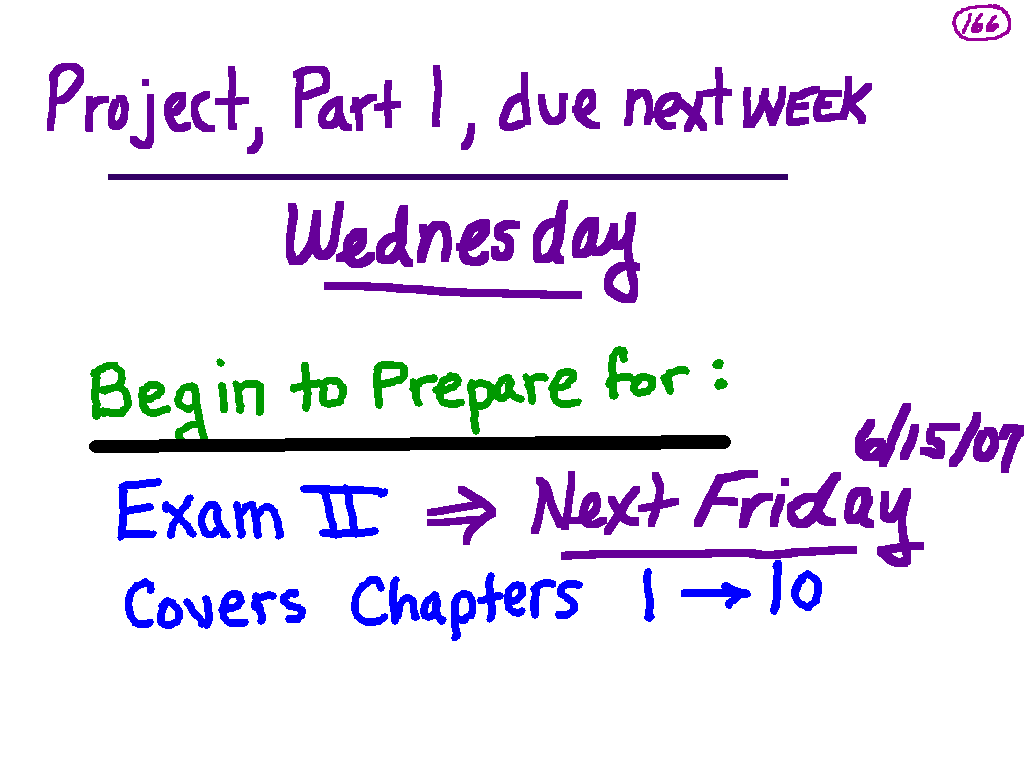 166
Project, Part 1, due next WEEK
Wednesday
Begin to Prepare for:
6/15/07
Exam II ⇒ Next Friday
Covers Chapters 1 → 10